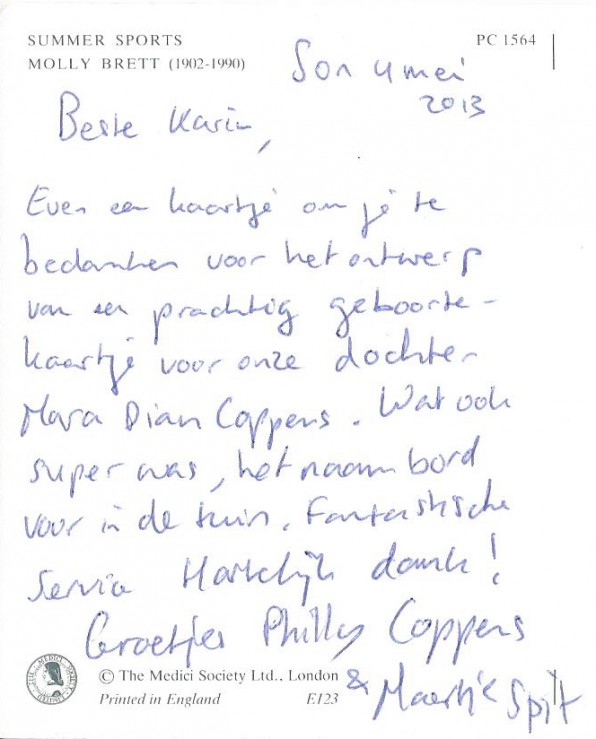 SUMMER SPORTS
MOLLY BRETT (1902-1990)
PC 1564
Son 4 mei
2013
Beste Karin,
Even een kaartje om je te
bedanken voor het ontwerp
van een prachtig geboorte-
kaartje voor onze dochter
Mara Dian Coppens. Wat ook
super was, het naambord
voor in de tuin. Fantastische
service Hartelijk dank!
Groetjes Phillip Coppens
& Maartje Spijt
© The Medici Society Ltd., London
Printed in England E123